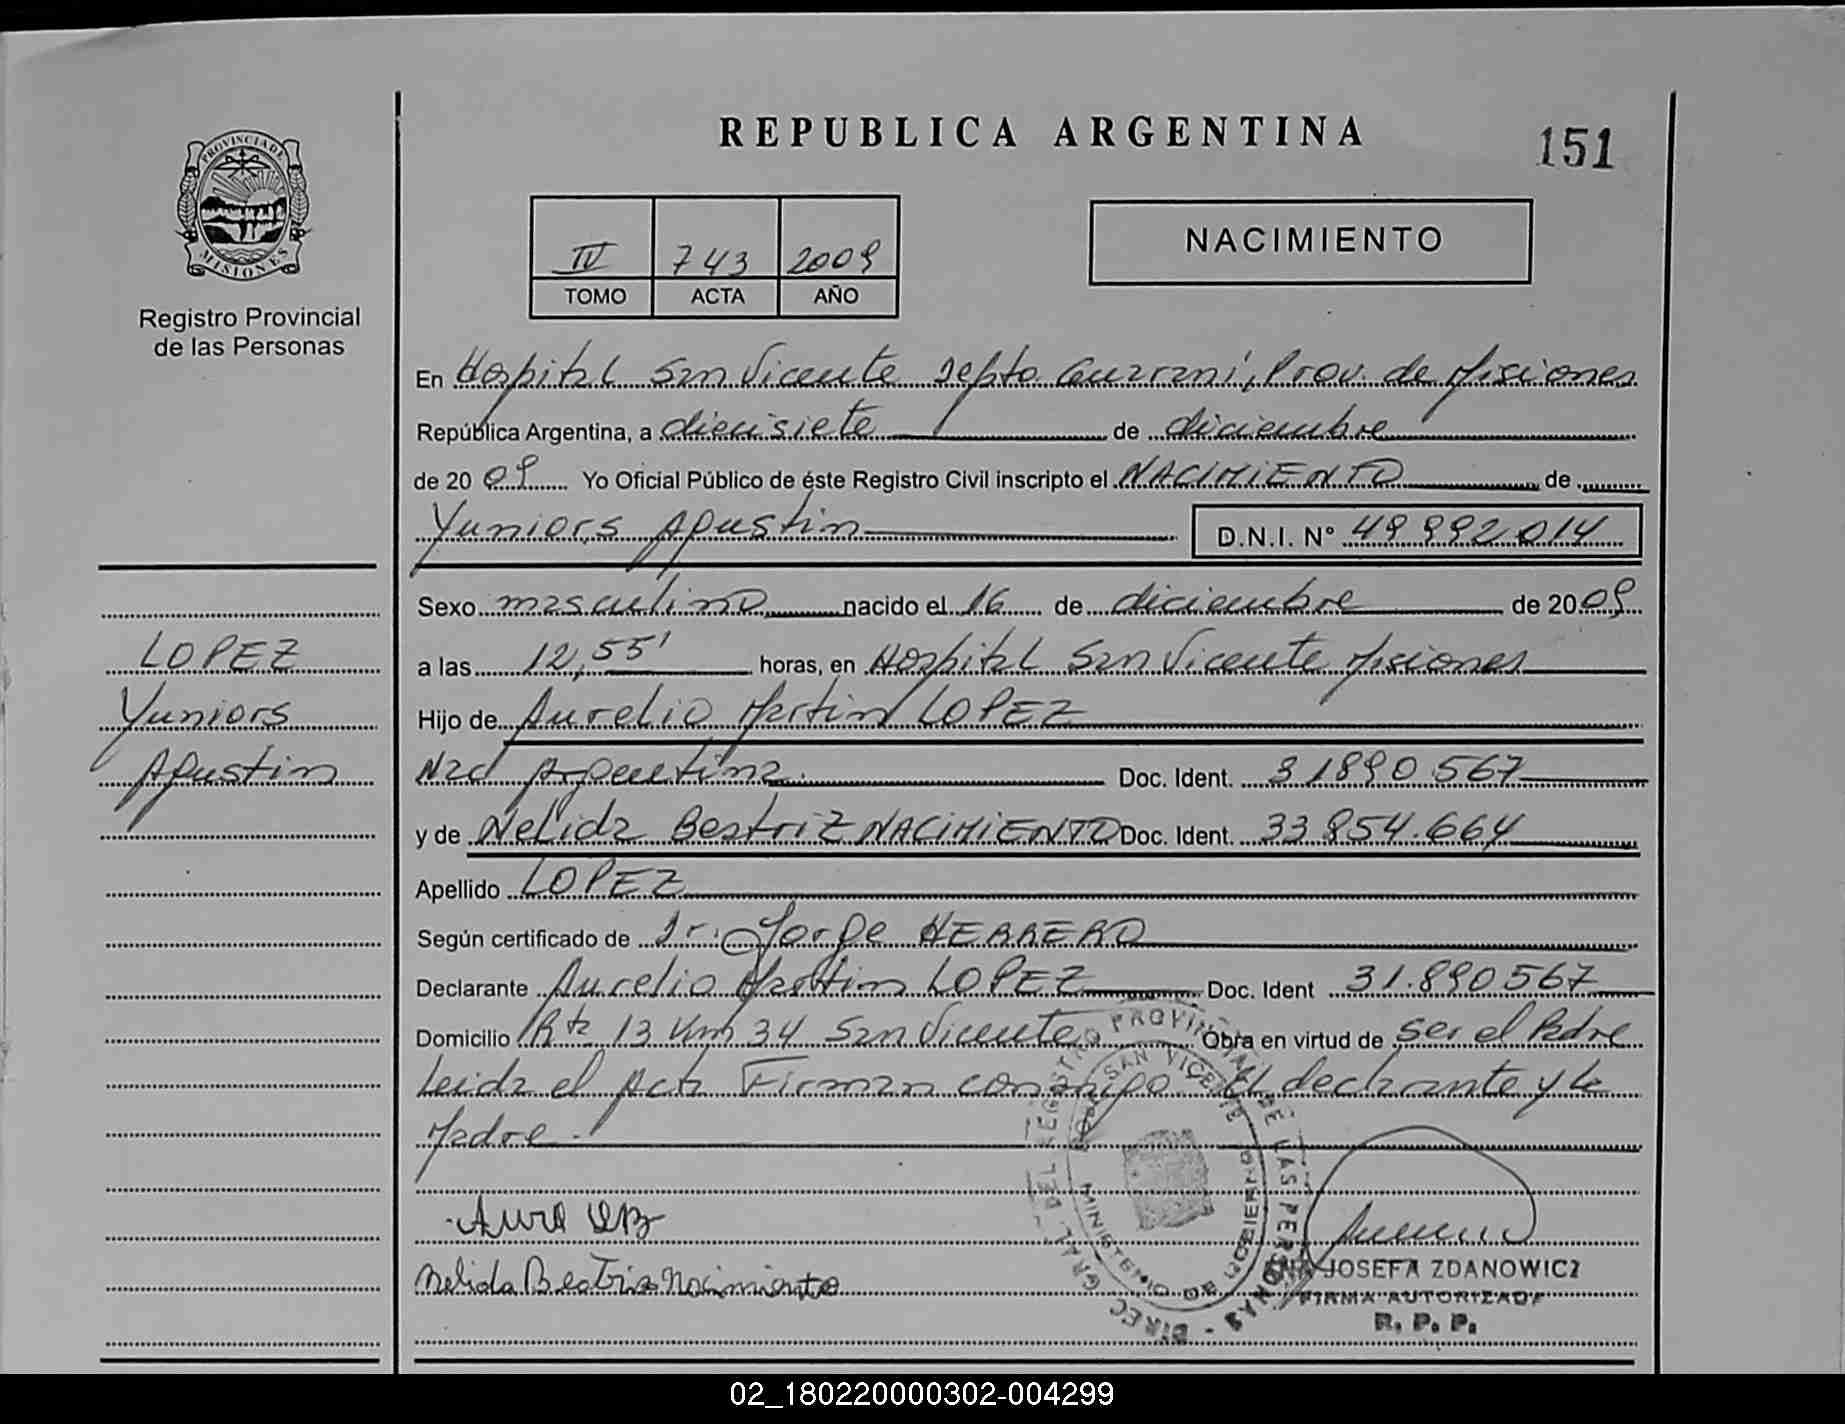 REPUBLICA ARGENTINA
151
PROVINCIA DE
MISIONES
Registro Provincial
de las Personas
IV 743 2009
TOMO ACTA AÑO
NACIMIENTO
En Hospital San Vicente Depto. Guarani, Prov. de Misiones
República Argentina, a diecisiete de diciembre
de 2009 Yo Oficial Público de éste Registro Civil inscripto el NACIMIENTO de
Yuniors Agustin D.N.I. N° 49992014
Sexo masculino nacido el 16 de diciembre de 2009
a las 12,55' horas, en Hospital San Vicente Misiones
Hijo de Aurelio Martin LOPEZ
Nac Argentina Doc. Ident. 31890567
y de Nelida Beatriz NACIMIENTO Doc. Ident. 33854.664
Apellido LOPEZ
Según certificado de Dr. Jorge HERRERO
Declarante Aurelio Martin LOPEZ Doc. Ident 31.890567
Domicilio Rta 13 Km 34 San Vicente Obra en virtud de ser el Padre
Leida el Acta Firman conmigo El declarante y la
Madre.
LOPEZ
Yuniors
Agustin
Nelida Beatriz Nacimiento
DIREC. GRAL. DEL REGISTRO PROVINCIAL DE LAS PERSONAS
SAN VICENTE
MINISTERIO DE GOBIERNO
ANA JOSEFA ZDANOWICZ
FIRMA AUTORIZADA
R. P. P.
02_180220000302-004299